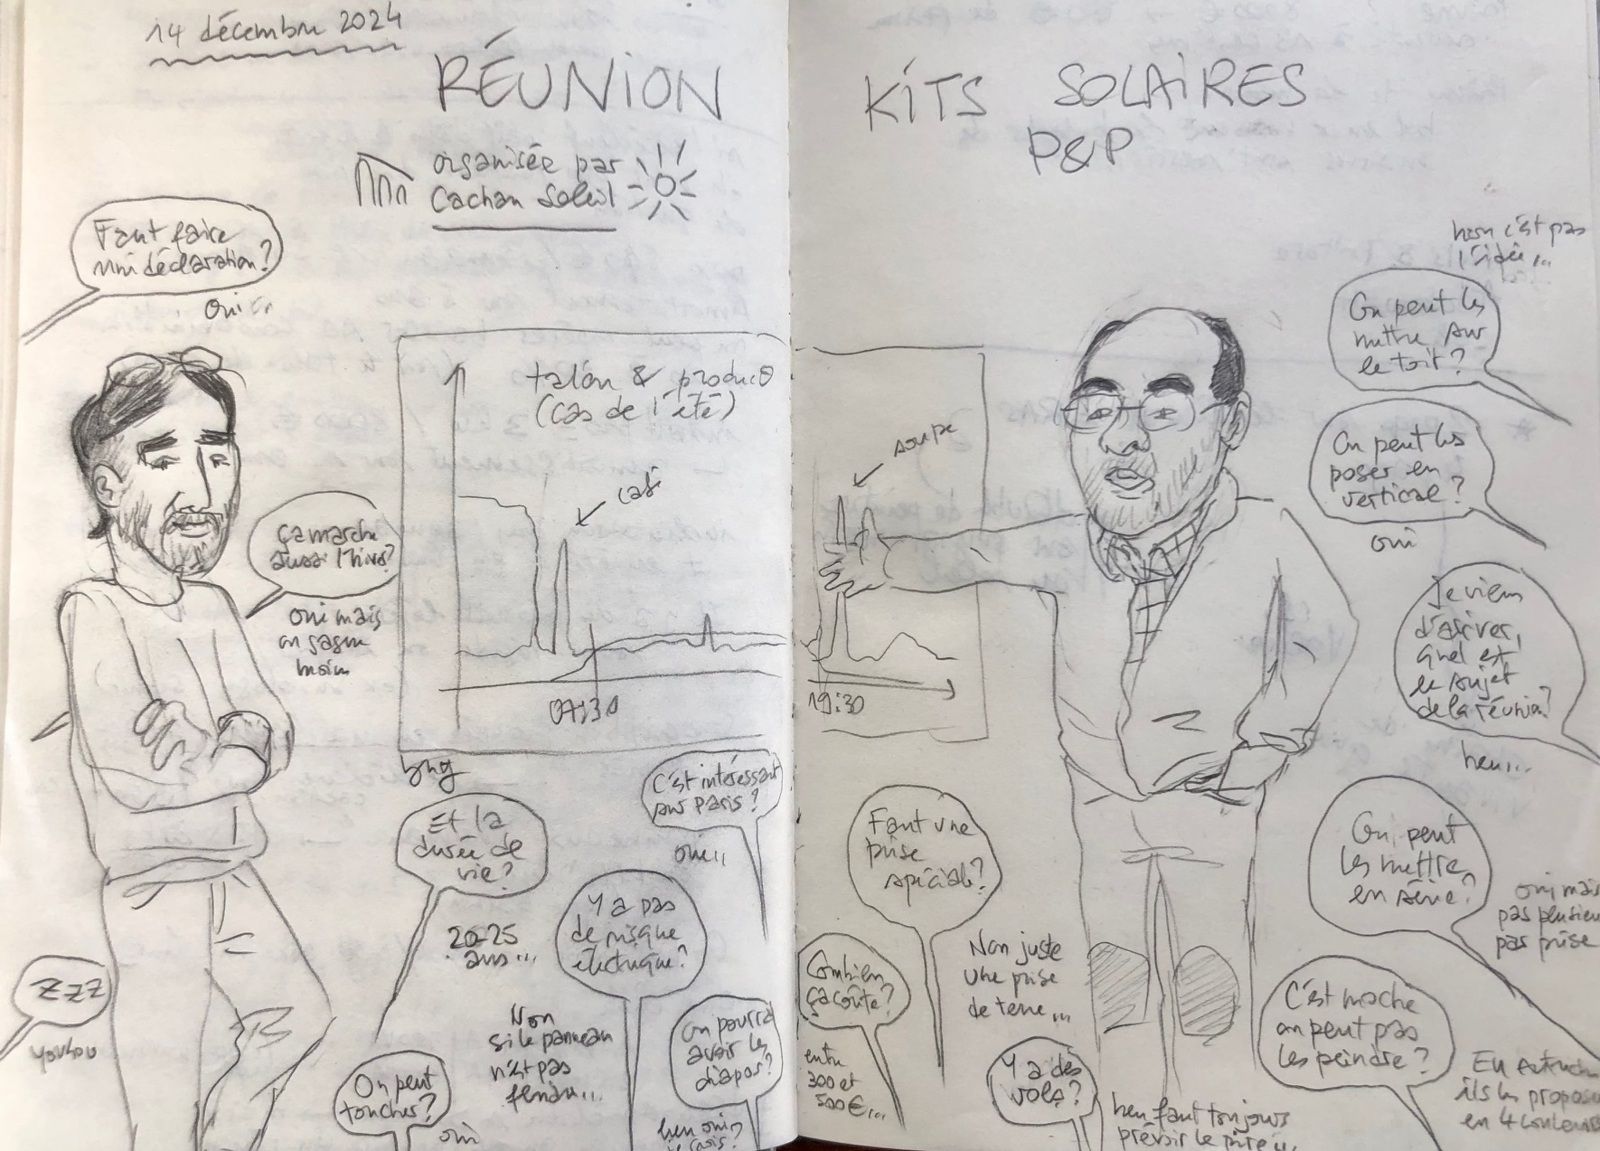 14 décembre 2024
RÉUNION
organisée par
Cachan Soleil
Faut faire
une déclaration?
oui
ça marche
aussi l'hiver?
oui mais
on gagne
moins
talon & product°
(cas de l'été)
café
07:30
Et la
durée de
vie?
20-25
ans...
C'est intéressant
sur Paris?
oui...
Y a pas
de risque
électrique?
Non
si le panneau
n'est pas
fendu...
On pourra
avoir les
diapos?
ben oui?
je crois?
On peut
toucher?
oui
ZZZ
youhou
KITS SOLAIRES
P&P
soupe
19:30
non c'est pas
l'idée...
On peut les
mettre sur
le toit?
On peut les
poser en
vertical?
oui
Je viens
d'arriver,
quel est
le sujet
de la réunion?
heu...
Faut une
prise
spéciale?
Non juste
une prise
de terre...
Combien
ça coûte?
entre
300 et
500€...
Y a des
vols?
ben faut toujours
prévoir le pire...
On peut
les mettre
en série?
oui mais
pas plusieurs
par prise
C'est moche
on peut pas
les peindre?
En attendant
ils les proposent
en 4 couleurs